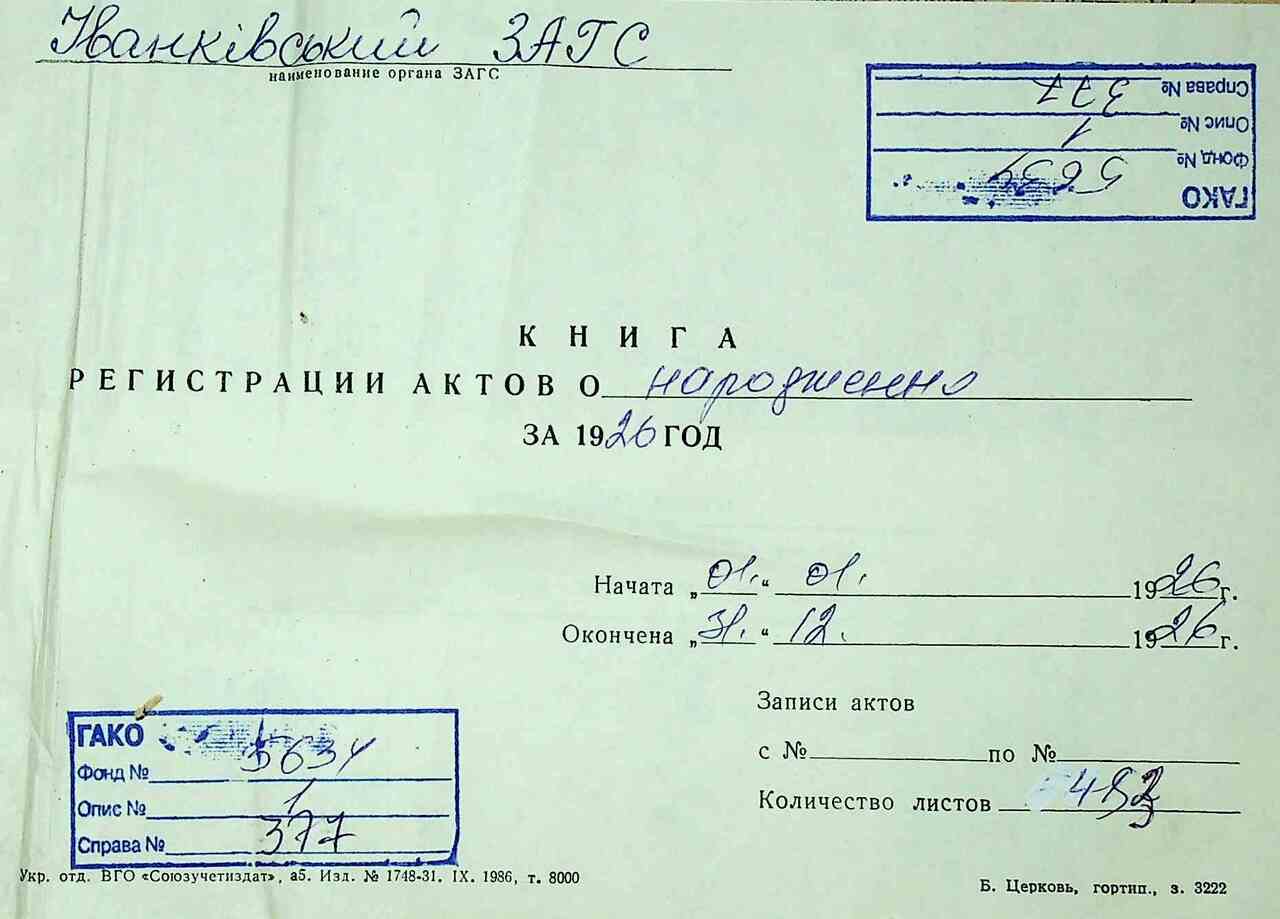 Іванківський ЗАГС
наименование органа ЗАГС
Справа № 377
Опис № 1
Фонд № 5634
ГАКО
КНИГА
РЕГИСТРАЦИИ АКТОВ О народженню
ЗА 1926 ГОД
Начата „01.“ 01. 1926 г.
Окончена „31.“ 12. 1926 г.
Записи актов
с № по №
Количество листов
ГАКО
Фонд № 5634
Опис № 1
Справа № 377
Укр. отд. ВГО «Союзучетиздат», а5. Изд. № 1748-31. IX. 1986, т. 8000
Б. Церковь, гортип., з. 3222